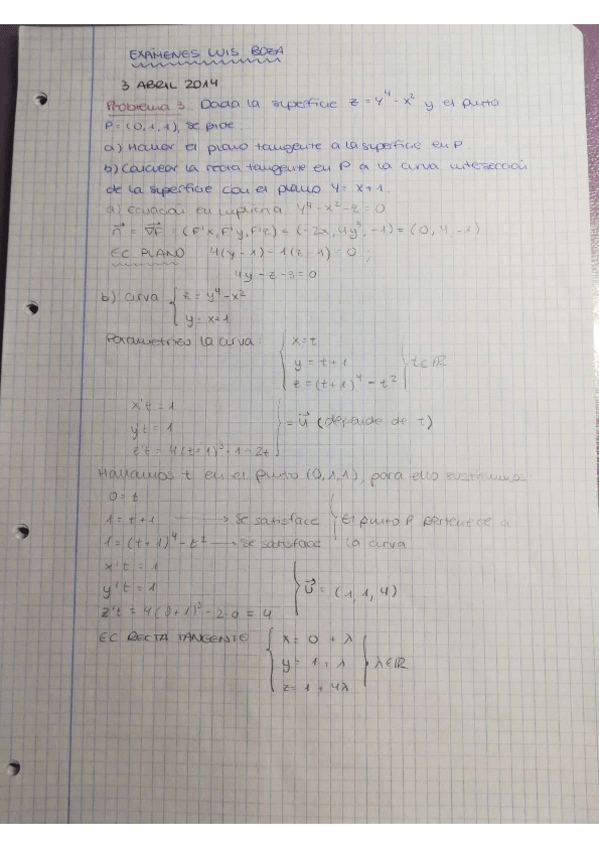 EXÁMENES LUIS BOZA
3 ABRIL 2014
Problema 3. Dada la superficie z = y⁴ - x² y el punto
P = (0,1,1), se pide:
a) Hallar el plano tangente a la superficie en P.
b) Calcular la recta tangente en P a la curva intersección
de la superficie con el plano y = x+1.
a) Ecuación en implícita y⁴ - x² - z = 0
n⃗ = ∇F = (F'x, F'y, F'z) = (-2x, 4y³, -1) = (0, 4, -1)
EC PLANO 4(y-1) - 1(z-1) = 0 ;
4y - z - 3 = 0
b) Curva { z = y⁴ - x²
y = x+1
Parametrizo la curva: { x = t
y = t+1 } t ∈ ℝ
z = (t+1)⁴ - t²
x't = 1
y't = 1 } = u⃗ (depende de t)
z't = 4(t+1)³·1 - 2t
Hallamos t en el punto (0,1,1), para ello sustituimos
0 = t
1 = t+1 → se satisface } El punto P pertenece a
1 = (t+1)⁴ - t² → se satisface la curva
x't = 1
y't = 1 } u⃗ = (1, 1, 4)
z't = 4(0+1)³ - 2·0 = 4
EC RECTA TANGENTE { x = 0 + λ
y = 1 + λ } λ ∈ ℝ
z = 1 + 4λ